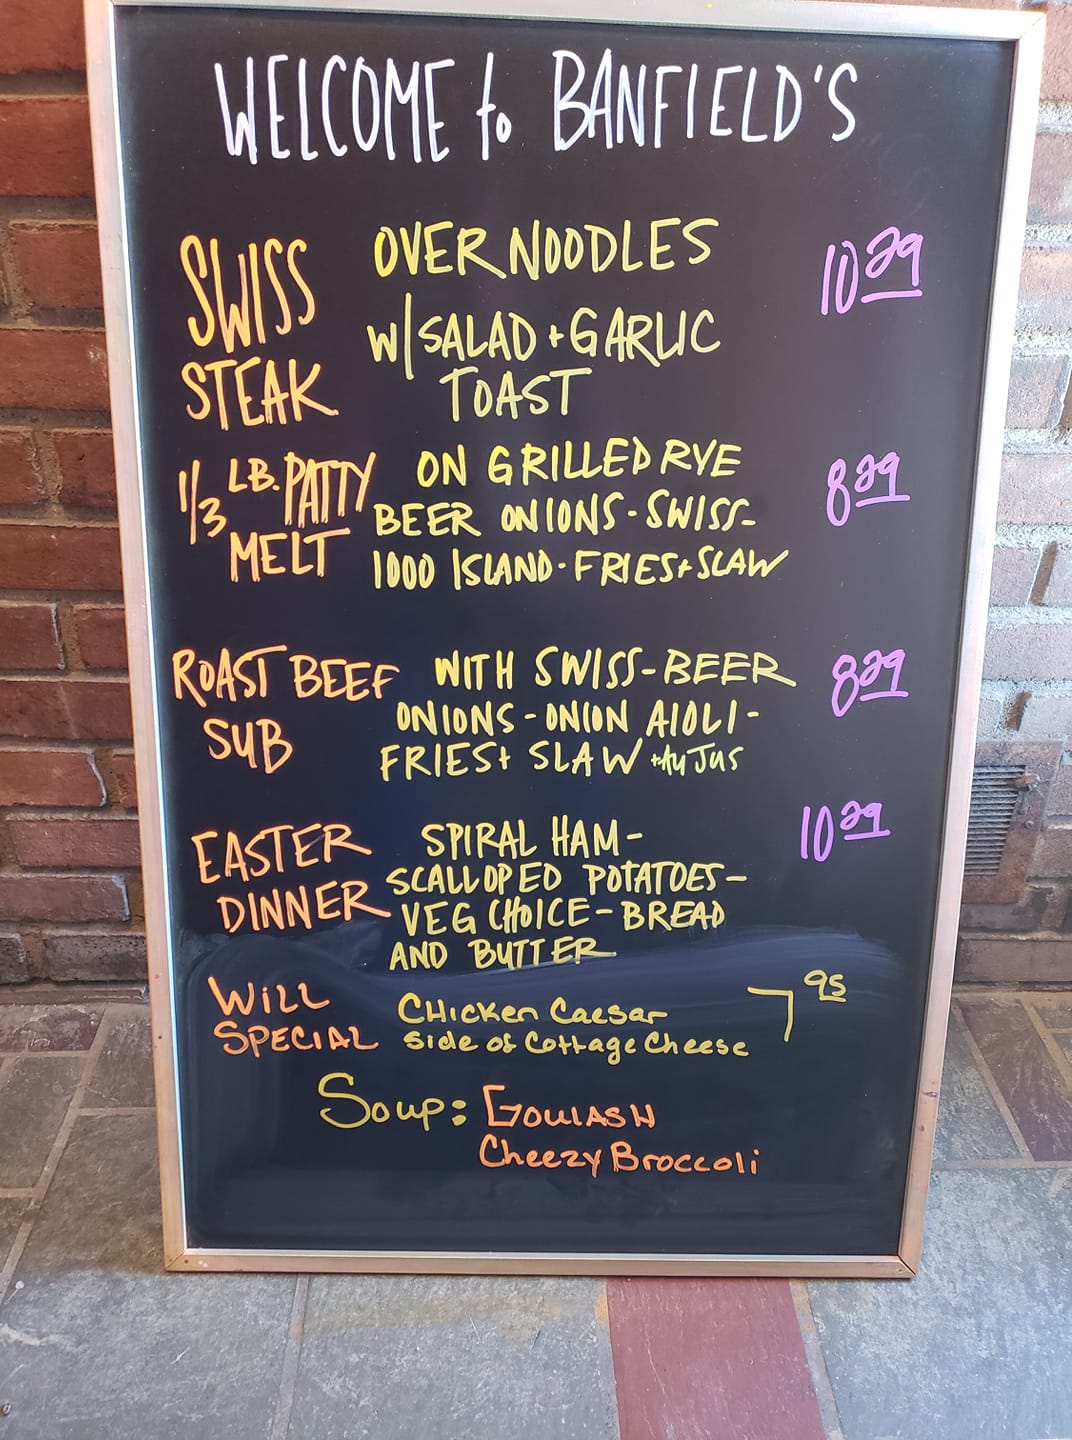 WELCOME to BANFIELD'S
SWISS STEAK
OVER NOODLES
W/SALAD + GARLIC
TOAST
10 29
1/3 LB. PATTY MELT
ON GRILLED RYE
BEER ONIONS - SWISS -
1000 ISLAND - FRIES + SLAW
8 29
ROAST BEEF SUB
WITH SWISS - BEER
ONIONS - ONION AIOLI -
FRIES + SLAW + Au Jus
8 29
EASTER DINNER
SPIRAL HAM -
SCALLOPED POTATOES -
VEG CHOICE - BREAD
AND BUTTER
10 29
WILL SPECIAL
CHicken Caesar
Side of Cottage Cheese
7 95
Soup: GOULASH
Cheezy Broccoli